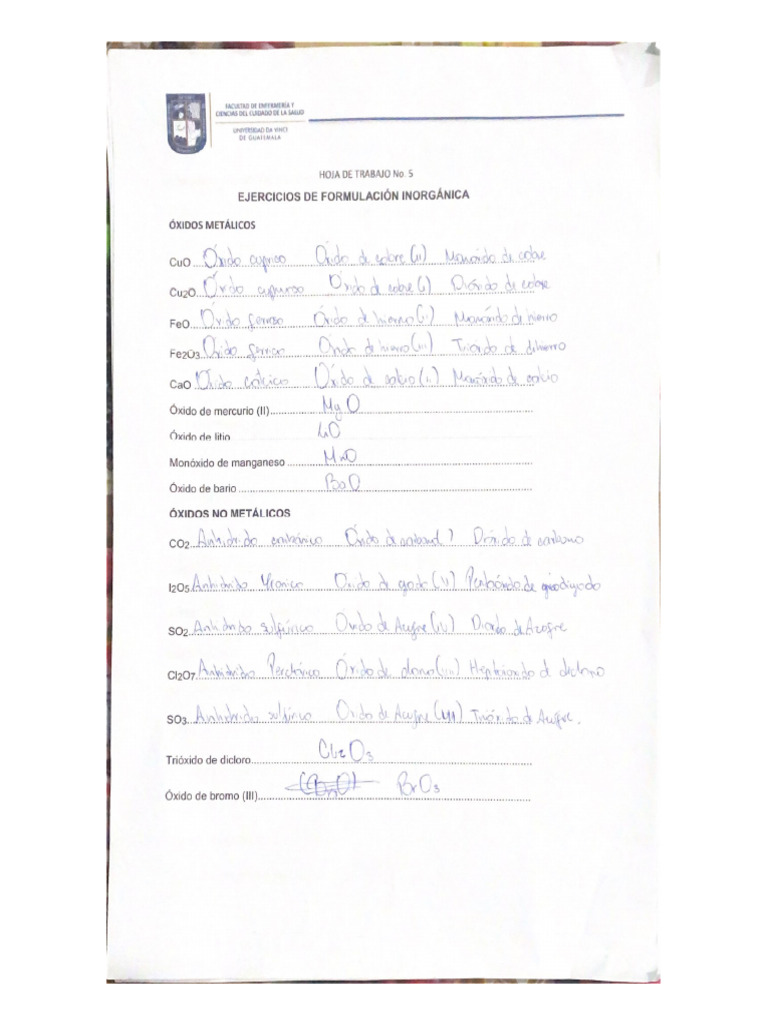 FACULTAD DE ENFERMERÍA Y
CIENCIAS DEL CUIDADO DE LA SALUD
UNIVERSIDAD DA VINCI
DE GUATEMALA
HOJA DE TRABAJO No. 5
EJERCICIOS DE FORMULACIÓN INORGÁNICA
ÓXIDOS METÁLICOS
CuO Óxido cuprico Óxido de cobre (II) Monóxido de cobre
Cu2O Óxido cuproso Óxido de cobre (I) Dióxido de cobre
FeO Óxido ferroso Óxido de hierro (II) Monóxido de hierro
Fe2O3 Óxido ferrico Óxido de hierro (III) Trióxido de dihierro
CaO Óxido cálcico Óxido de calcio (II) Monóxido de calcio
Óxido de mercurio (II) MgO
Óxido de litio
Monóxido de manganeso MnO
Óxido de bario BaO
ÓXIDOS NO METÁLICOS
CO2 Anhidrido carbónico Óxido de Dióxido de carbono
I2O5 Anhidrido Óxido de Pentaóxido de diyodo
SO2 Anhidrido Oxido de Azufre (IV) Dioxido de Azufre
Cl2O7 Anhidrido Perclórico Óxido de cloro Heptaoxido d dicloro
SO3 Anhidrido sulfúrico Oxido de Azufre Trióxido de Azufre.
Trióxido de dicloro Cl2O3
Óxido de bromo (III) BrO3